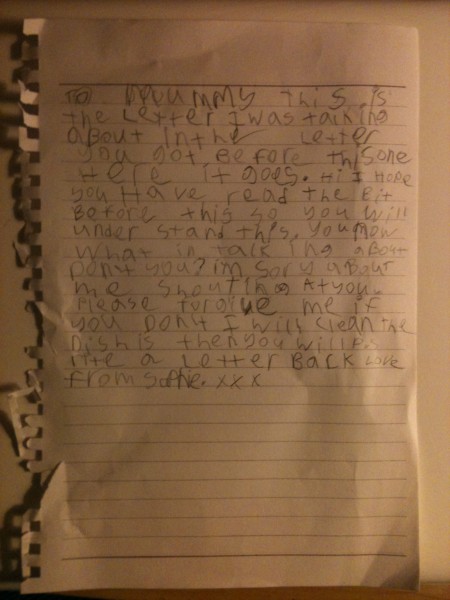 TO MUMMY this is
the Letter I was talking
aBout in the Letter
you got Before this one
Here it goes. Hi I Hope
you Have read the Bit
Before this so you will
under stand this. you now
What im talk ing aBout
Dont you? im Sory aBout
me Shouting At you.
Please forgive me if
you Dont I will clean the
Dishis then you will
rite a Letter Back Love
from Sophie. xxx